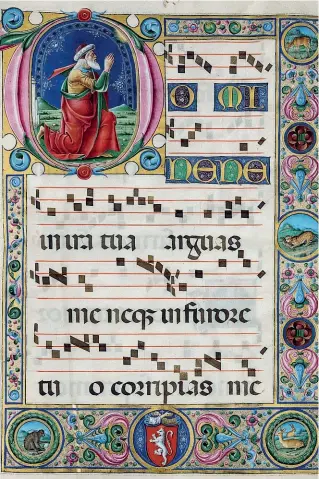 DO MI
NE NE
in ira tua arguas
me neqꝫ in furore
tu o corripias me